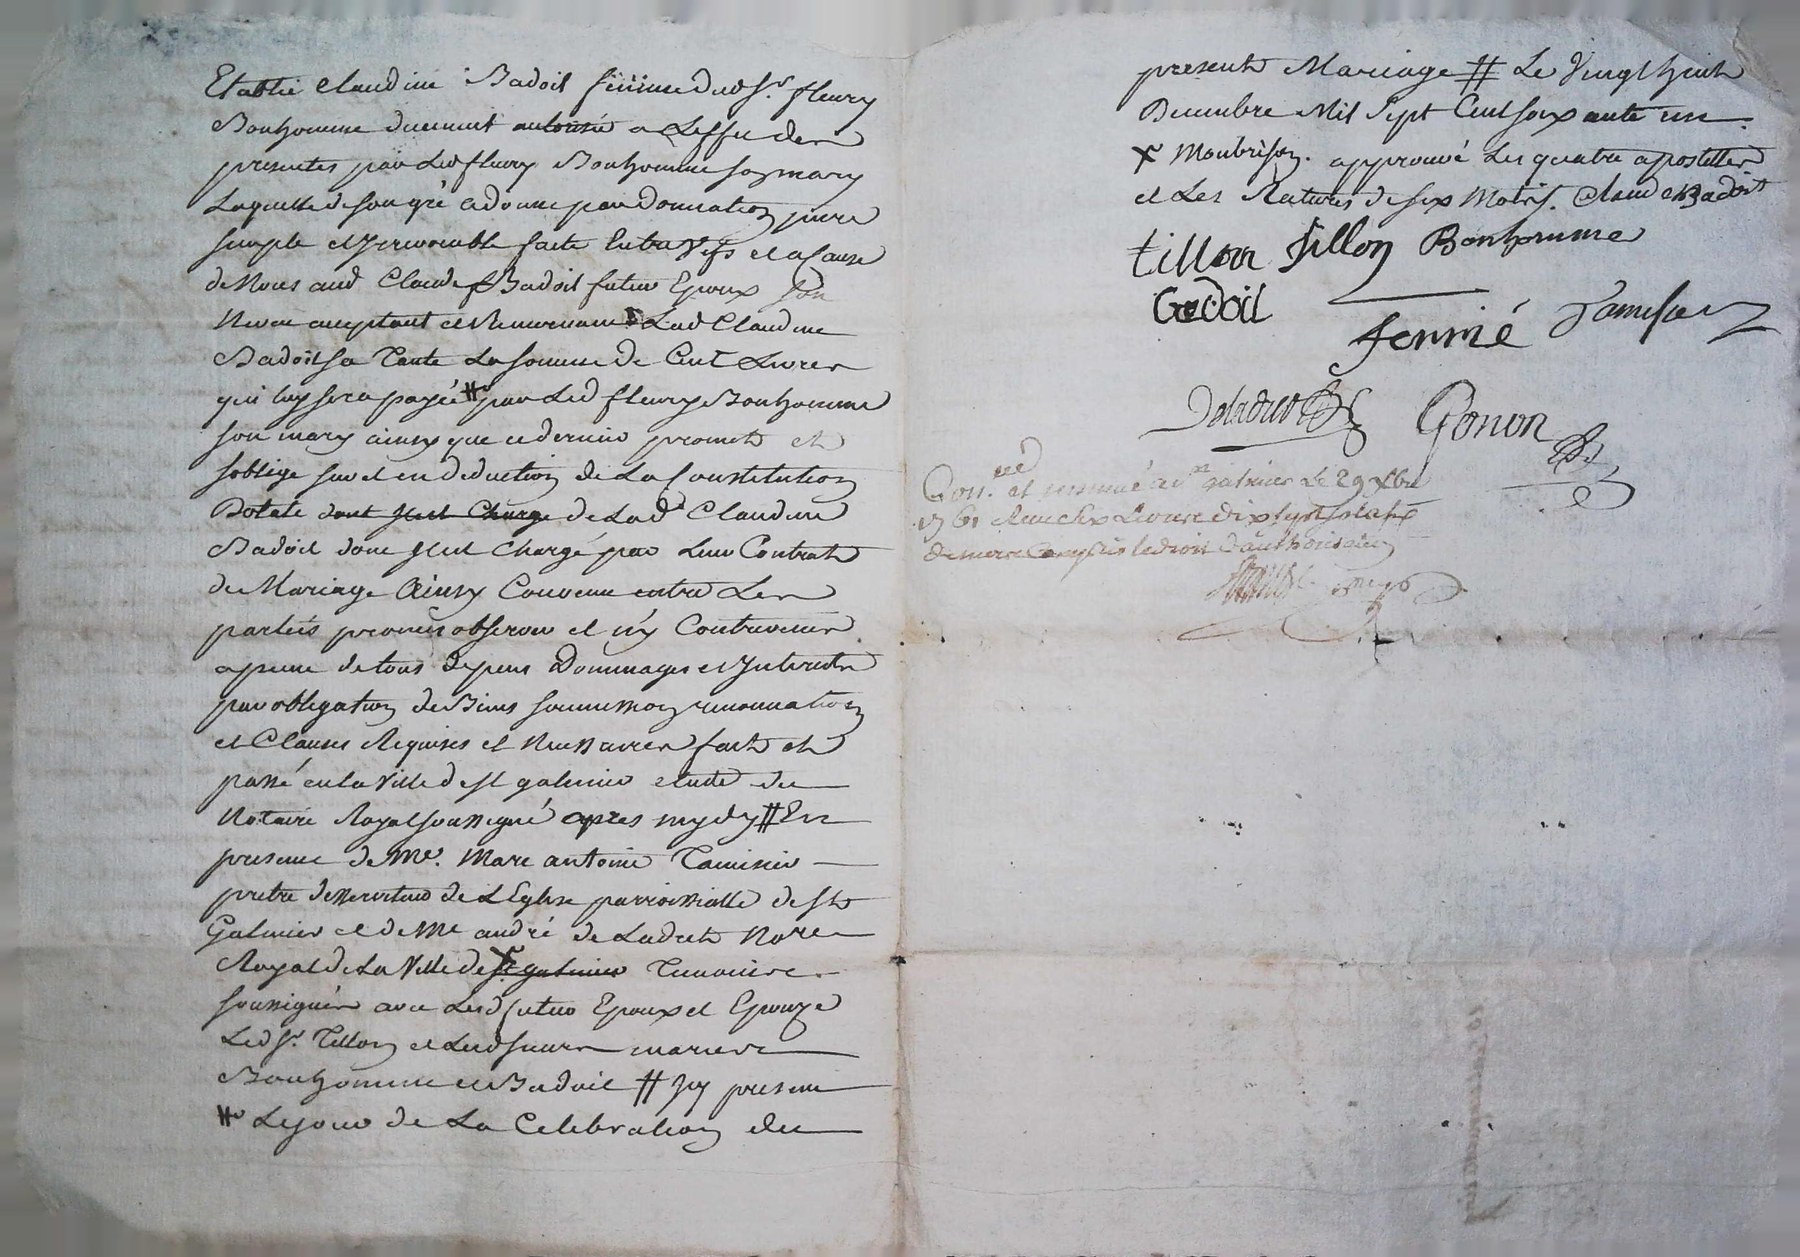 Etablie Claudine Badoil femme dud Sr. fleury
Bonhomme duement autorisée a Leffet des
presentes par Led fleury Bonhomme son mary
Laquelle de son gré a donné par donnation pure
simple et irrevocable faite Entre Vifs et a Cause
de Noces aud Claude Badoil futur Epoux son
Neveu acceptant et Remerciant Lad Claudine
Badoil sa Tante La somme de Cent Livres
qui luy sera payée # par Led fleury Bonhomme
son mary ainsy que ce dernier promet et
soblige sur et en deduction de La Constitution
Dotale dont il est Charge de Lad Claudine
Badoil dont il est Chargé par Leur Contrat
de Mariage Ainsy Convenu entre Les
parties promis observer et n'y Contrevenir
a peine de tous depens Dommages et Interets
par obligation de Biens soumission renonciation
et Clauses Requises et Necessaires fait et
passé en la Ville de St galmier etude du
Notaire Royal soussigné apres mydy # En
presence de Me. Marc antoine Tamisier
pretre desserviteur de L'Eglise parroissialle de St
Galmier et de Me andré de Ladret Nore
Royal de La Ville de St. galmier Temoins
soussignés avec Lesd futur Epoux et Epouze
Led Sr. Tillon et Lesd sieurs mariers
Bonhomme et Badoil # Icy presens
# Le jour de La Celebration du
present Mariage # Le Vingt huit
Decembre Mil Sept Cent soixante un
x Monbrison. approuvé Les quatre apostilles
et Les Ratures de six Mots. Claude Badoit
tillon Tillon Bonhomme
Badoil
fermé Tamisier
Deladret Gonon
Con.lé et insinué a St galmier Le 29 Xbre
1761 Reçu six Livres dix sept sols six
deniers Compris le droit d'authorisation